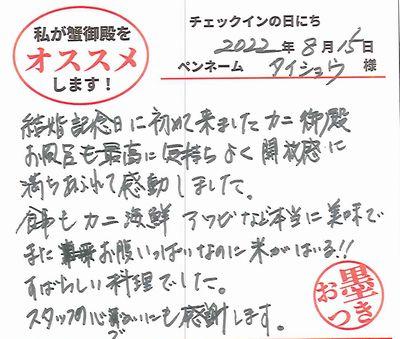 私が蟹御殿を
オススメ
します!
チェックインの日にち
2022年8月15日
ペンネーム タイショウ 様
結婚記念日に初めて来ましたカニ御殿
お風呂も最高に気持ちよく開放感に
満ちあふれて感動しました。
飾もカニ海鮮アワビなど本当に美味で
またお腹いっぱいなのに米がはいる!!
すばらしい料理でした。
スタッフの心づかいにも感動します。
お墨つき